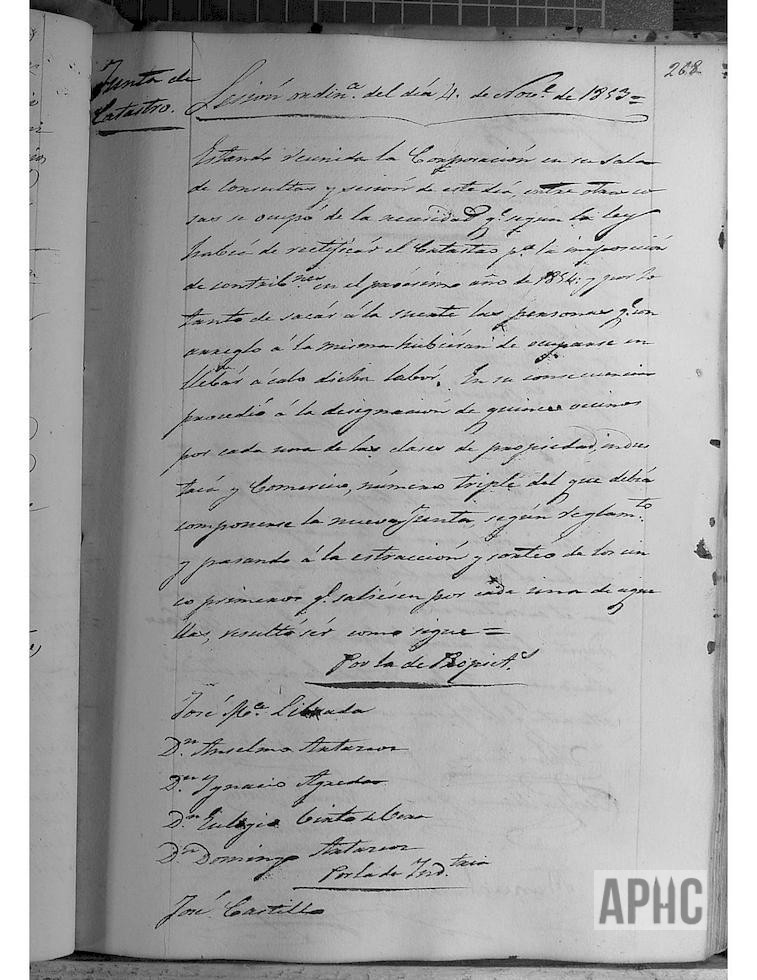 268
Junta de
Catastro.
Sesión ordin.ª del día 4. de Nov.e de 1853=
Estando reunida la Corporación en su Sala
de Consultas y sesión de este dia, entre otras co
sas se ocupó de la necesidad q.e segun la ley
había de rectificár el Catastro p.a la imposición
de contrib.nes en el pxãsimo año de 1854; y por lo
tanto de sacár á la suerte las personas q.e con
arreglo á la misma hubieran de ocuparse en
llebár á cabo dicha labór. En su consecuencia
procedió á la designación de quince vecinos
por cada una de las clases de propiedad, indus
tria y Comercio, número triple del que debía
componerse la nueva Junta, según reglam.to
y pasando á la estracción y sorteo de los cin
co primeros q.e saliesen por cada una de aque
llas, resultó sér como sigue=
Por la de Propiet.s
José M.a Librada
D.n Anselmo
D.n Ygnacio Agredas
D.n Eulogio
D.n Domingo
Por la de Ind.tria
José Castillo
APHC